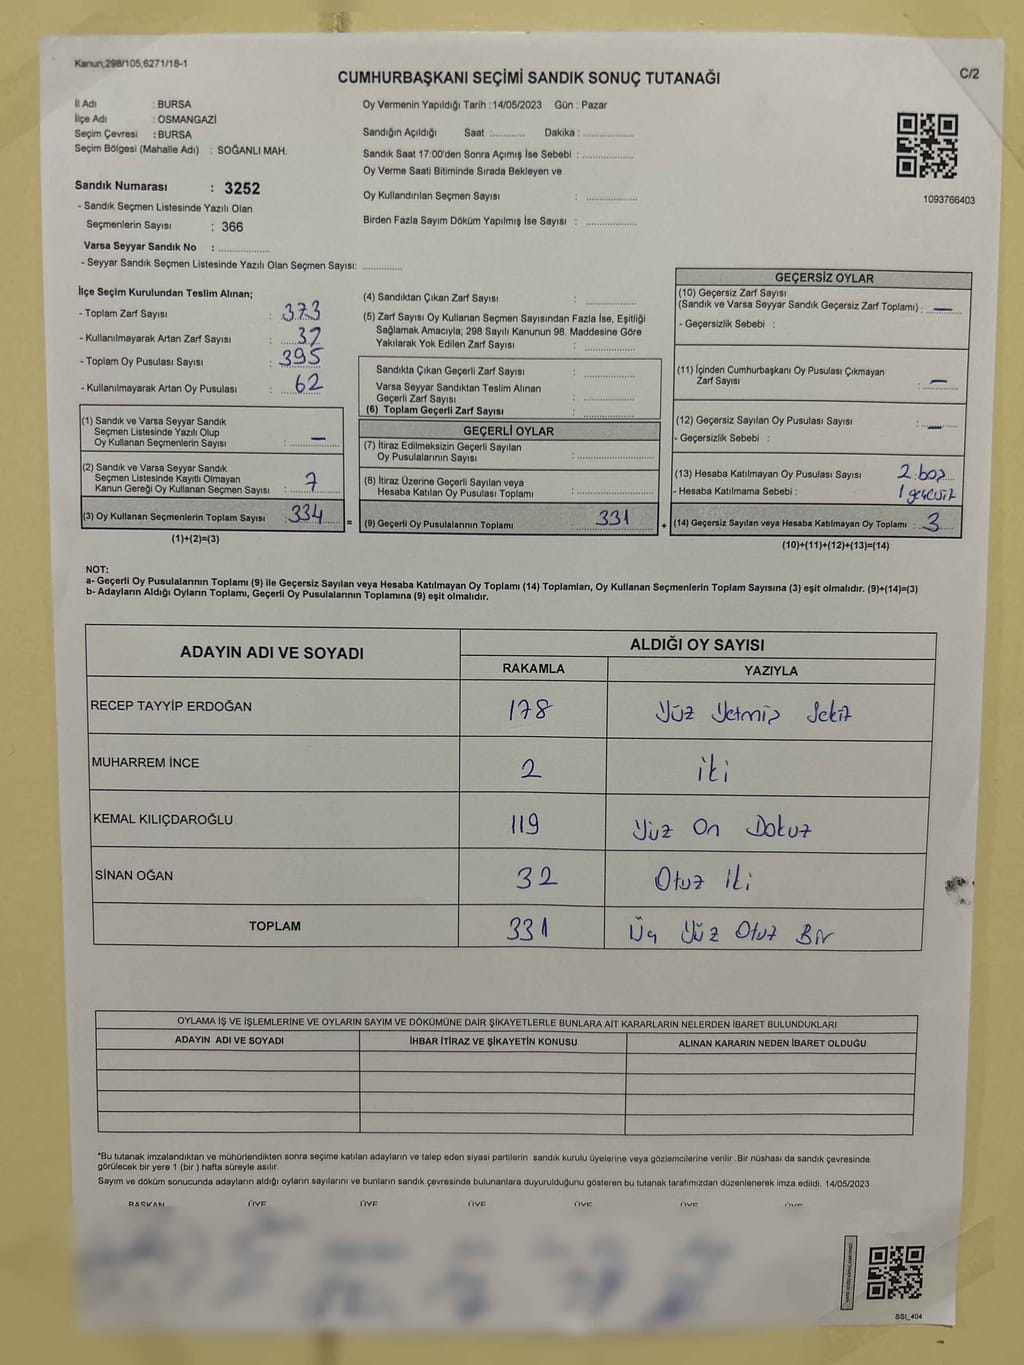 Kanun;298/105,6271/18-1
CUMHURBAŞKANI SEÇİMİ SANDIK SONUÇ TUTANAĞI
C/2
İl Adı : BURSA
İlçe Adı : OSMANGAZİ
Seçim Çevresi : BURSA
Seçim Bölgesi (Mahalle Adı) : SOĞANLI MAH.
Sandık Numarası : 3252
- Sandık Seçmen Listesinde Yazılı Olan
Seçmenlerin Sayısı : 366
Varsa Seyyar Sandık No : ..............
- Seyyar Sandık Seçmen Listesinde Yazılı Olan Seçmen Sayısı: ............
Oy Vermenin Yapıldığı Tarih :14/05/2023 Gün : Pazar
Sandığın Açıldığı Saat :........... Dakika : ................
Sandık Saat 17:00'den Sonra Açımış İse Sebebi : ................
Oy Verme Saati Bitiminde Sırada Bekleyen ve
Oy Kullandırılan Seçmen Sayısı : ................
Birden Fazla Sayım Döküm Yapılmış İse Sayısı : ................
1093766403
İlçe Seçim Kurulundan Teslim Alınan;
- Toplam Zarf Sayısı : 373
- Kullanılmayarak Artan Zarf Sayısı : 37
- Toplam Oy Pusulası Sayısı : 395
- Kullanılmayarak Artan Oy Pusulası : 62
(1) Sandık ve Varsa Seyyar Sandık
Seçmen Listesinde Yazılı Olup
Oy Kullanan Seçmenlerin Sayısı : —
(2) Sandık ve Varsa Seyyar Sandık
Seçmen Listesinde Kayıtlı Olmayan
Kanun Gereği Oy Kullanan Seçmen Sayısı : 7
(3) Oy Kullanan Seçmenlerin Toplam Sayısı : 334 =
(1)+(2)=(3)
(4) Sandıktan Çıkan Zarf Sayısı : ................
(5) Zarf Sayısı Oy Kullanan Seçmen Sayısından Fazla İse, Eşitliği
Sağlamak Amacıyla; 298 Sayılı Kanunun 98. Maddesine Göre
Yakılarak Yok Edilen Zarf Sayısı : ................
Sandıkta Çıkan Geçerli Zarf Sayısı : ................
Varsa Seyyar Sandıktan Teslim Alınan
Geçerli Zarf Sayısı : ................
(6) Toplam Geçerli Zarf Sayısı : ................
GEÇERLİ OYLAR
(7) İtiraz Edilmeksizin Geçerli Sayılan
Oy Pusulalarının Sayısı : ................
(8) İtiraz Üzerine Geçerli Sayılan veya
Hesaba Katılan Oy Pusulası Toplamı : ................
(9) Geçerli Oy Pusulalarının Toplamı : 331 +
GEÇERSİZ OYLAR
(10) Geçersiz Zarf Sayısı
(Sandık ve Varsa Seyyar Sandık Geçersiz Zarf Toplamı) : —
- Geçersizlik Sebebi :
(11) İçinden Cumhurbaşkanı Oy Pusulası Çıkmayan
Zarf Sayısı : —
(12) Geçersiz Sayılan Oy Pusulası Sayısı : —
- Geçersizlik Sebebi :
(13) Hesaba Katılmayan Oy Pusulası Sayısı 2 boş
- Hesaba Katılmama Sebebi : 1 geçersiz
(14) Geçersiz Sayılan veya Hesaba Katılmayan Oy Toplamı : 3
(10)+(11)+(12)+(13)=(14)
NOT:
a- Geçerli Oy Pusulalarının Toplamı (9) ile Geçersiz Sayılan veya Hesaba Katılmayan Oy Toplamı (14) Toplamları, Oy Kullanan Seçmenlerin Toplam Sayısına (3) eşit olmalıdır. (9)+(14)=(3)
b- Adayların Aldığı Oyların Toplamı, Geçerli Oy Pusulalarının Toplamına (9) eşit olmalıdır.
ADAYIN ADI VE SOYADI ALDIĞI OY SAYISI
RAKAMLA YAZIYLA
RECEP TAYYİP ERDOĞAN 178 Yüz Yetmiş Sekiz
MUHARREM İNCE 2 iki
KEMAL KILIÇDAROĞLU 119 Yüz On Dokuz
SİNAN OĞAN 32 Otuz iki
TOPLAM 331 Üç Yüz Otuz Bir
OYLAMA İŞ VE İŞLEMLERİNE VE OYLARIN SAYIM VE DÖKÜMÜNE DAİR ŞİKAYETLERLE BUNLARA AİT KARARLARIN NELERDEN İBARET BULUNDUKLARI
ADAYIN ADI VE SOYADI İHBAR İTİRAZ VE ŞİKAYETİN KONUSU ALINAN KARARIN NEDEN İBARET OLDUĞU
*Bu tutanak imzalandıktan ve mühürlendikten sonra seçime katılan adayların ve talep eden siyasi partilerin sandık kurulu üyelerine veya gözlemcilerine verilir .Bir nüshası da sandık çevresinde
görülecek bir yere 1 (bir ) hafta süreyle asılır.
Sayım ve döküm sonucunda adayların aldığı oyların sayılarını ve bunların sandık çevresinde bulunanlara duyurulduğunu gösteren bu tutanak tarafımızdan düzenlenerek imza edildi. 14/05/2023
BAŞKAN ÜYE ÜYE ÜYE ÜYE ÜYE ÜYE
SSI_404